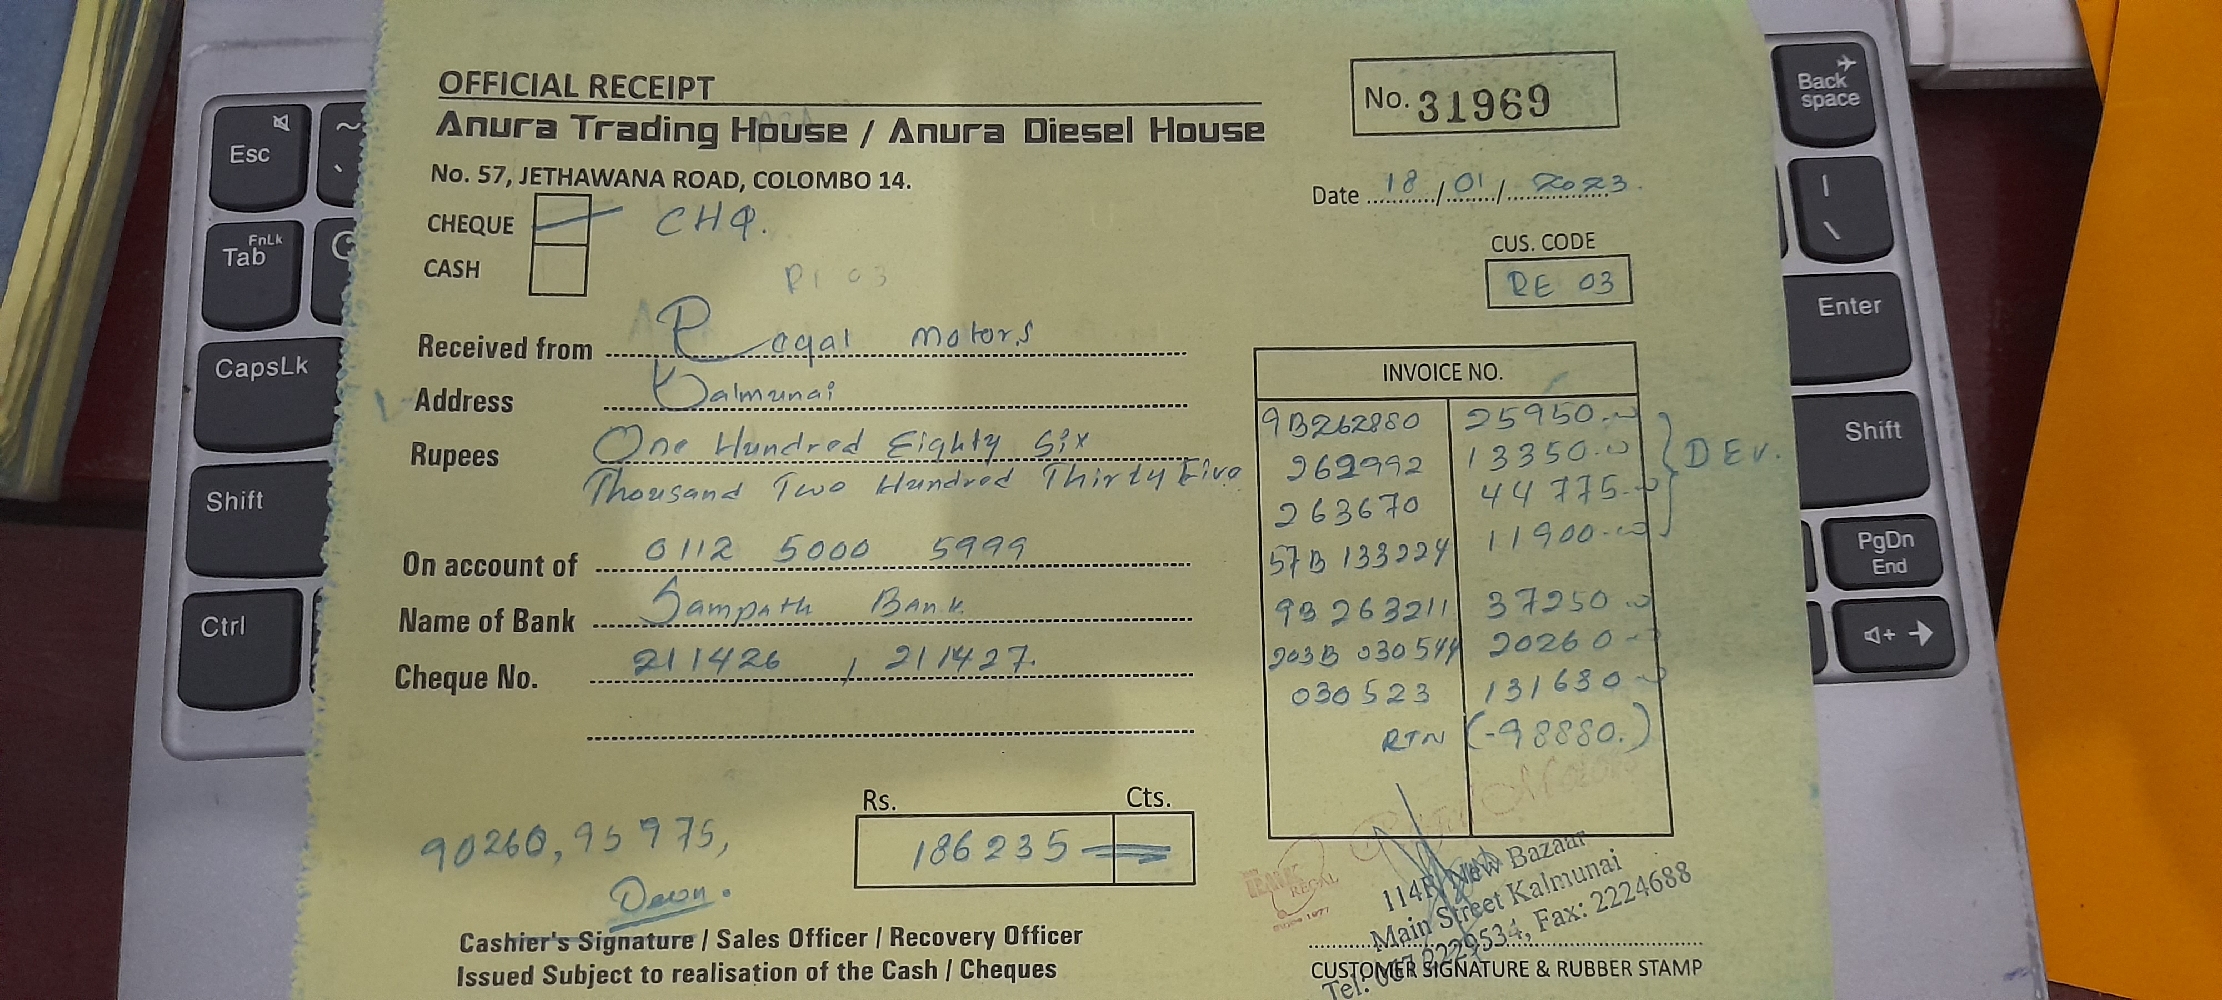 OFFICIAL RECEIPT
No. 31969
Anura Trading House / Anura Diesel House
No. 57, JETHAWANA ROAD, COLOMBO 14.
Date 18/01/2023.
CHEQUE CHQ.
CASH
CUS. CODE
RE 03
Received from Regal Motors
Address Kalmunai
Rupees One Hundred Eighty Six
Thousand Two Hundred Thirty Five
On account of 0112 5000 5999
Name of Bank Sampath Bank
Cheque No. 211426, 211427.
INVOICE NO.
9B262880 25950.00
262992 13350.00
263670 44775.00
57B 133224 11900.00
DEV.
9B 263211 37250.00
203B 030544 20260
030523 131630
RTN (-98880.)
Rs. Cts.
186235
90260, 95975,
Cashier's Signature / Sales Officer / Recovery Officer
Issued Subject to realisation of the Cash / Cheques
New Bazaar
Main Street Kalmunai
Tel: 067 2229534, Fax: 2224688
CUSTOMER SIGNATURE & RUBBER STAMP
Esc
Tab
FnLk
CapsLk
Shift
Ctrl
Back
space
Enter
Shift
PgDn
End